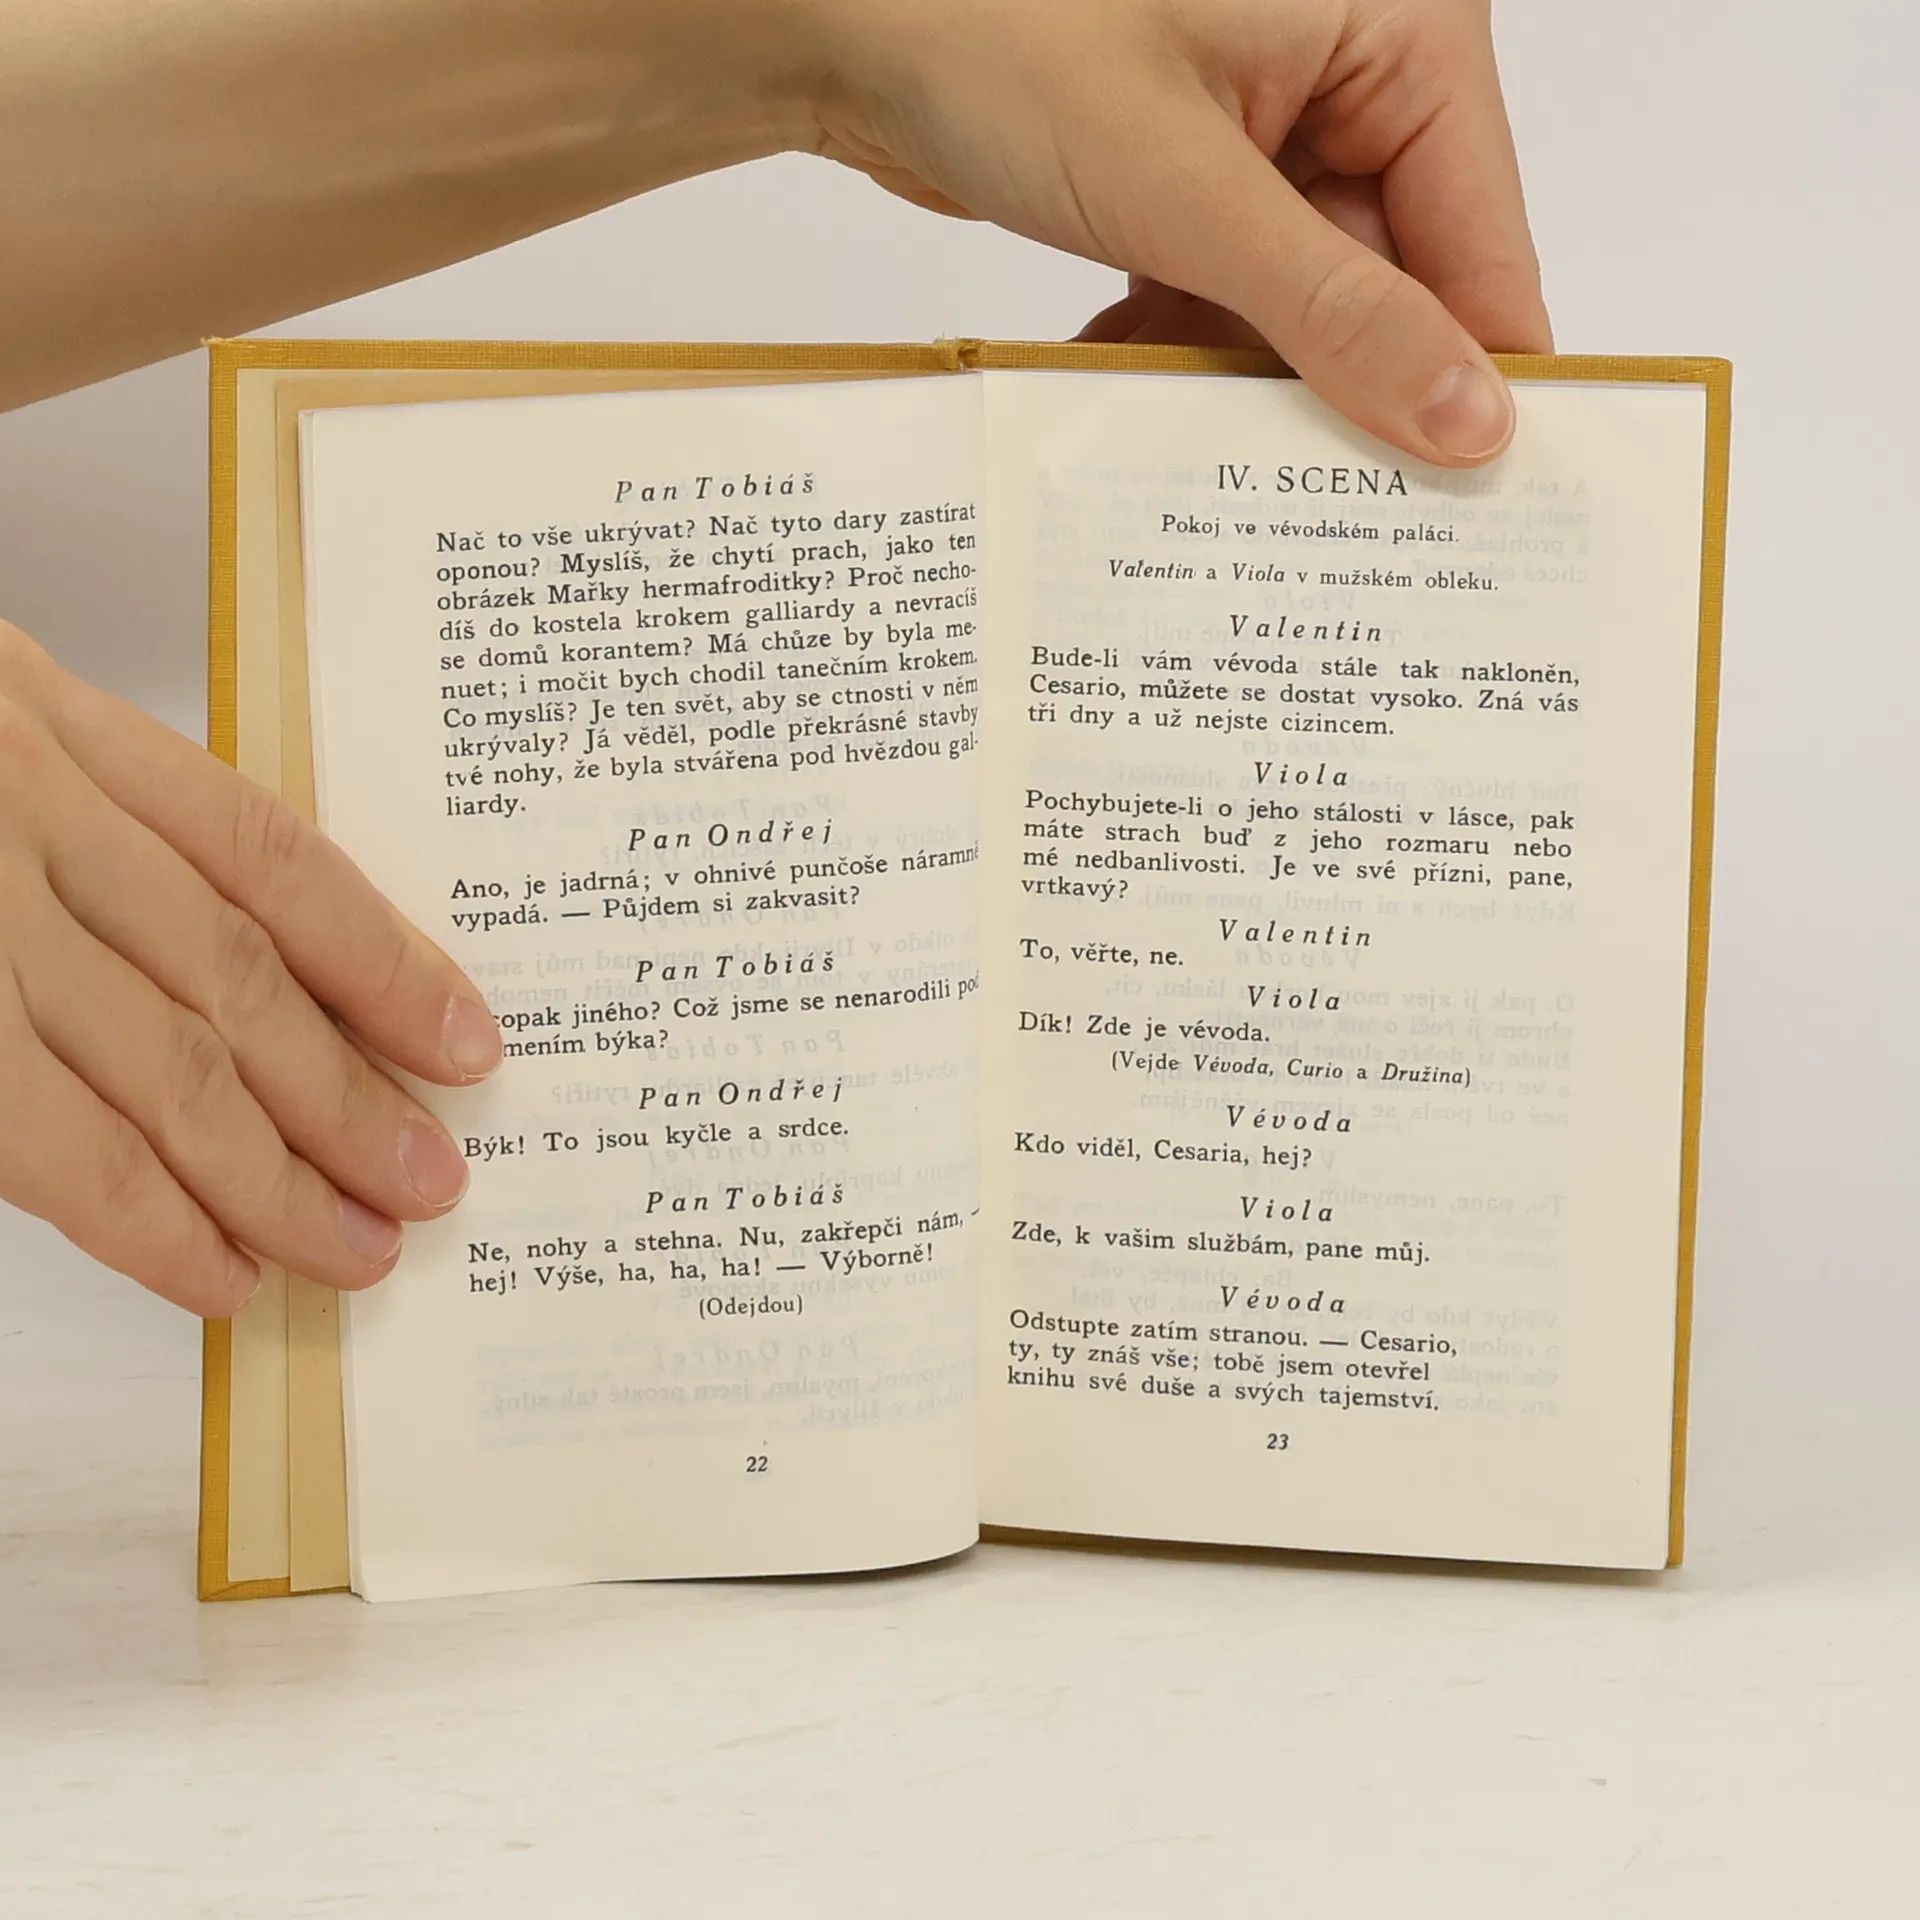 Pan Tobiáš
Nač to vše ukrývat? Nač tyto dary zastírat
oponou? Myslíš, že chytí prach, jako ten
obrázek Mařky hermafroditky? Proč necho-
díš do kostela krokem galliardy a nevracíš
se domů korantem? Má chůze by byla me-
nuet; i močit bych chodil tanečním krokem.
Co myslíš? Je ten svět, aby se ctnosti v něm
ukrývaly? Já věděl, podle překrásné stavby
tvé nohy, že byla stvářena pod hvězdou gal-
liardy.
Pan Ondřej
Ano, je jadrná; v ohnivé punčoše náramně
vypadá. — Půjdem si zakvasit?
Pan Tobiáš
copak jiného? Což jsme se nenarodili pod
mením býka?
Pan Ondřej
Býk! To jsou kyčle a srdce.
Pan Tobiáš
Ne, nohy a stehna. Nu, zakřepči nám, —
hej! Výše, ha, ha, ha! — Výborně!
(Odejdou)
22
IV. SCENA
Pokoj ve vévodském paláci.
Valentin a Viola v mužském obleku.
Valentin
Bude-li vám vévoda stále tak nakloněn,
Cesario, můžete se dostat vysoko. Zná vás
tři dny a už nejste cizincem.
Viola
Pochybujete-li o jeho stálosti v lásce, pak
máte strach buď z jeho rozmaru nebo
mé nedbanlivosti. Je ve své přízni, pane,
vrtkavý?
Valentin
To, věřte, ne.
Viola
Dík! Zde je vévoda.
(Vejde Vévoda, Curio a Družina)
Vévoda
Kdo viděl, Cesaria, hej?
Viola
Zde, k vašim službám, pane můj.
Vévoda
Odstupte zatím stranou. — Cesario,
ty, ty znáš vše; tobě jsem otevřel
knihu své duše a svých tajemství.
23